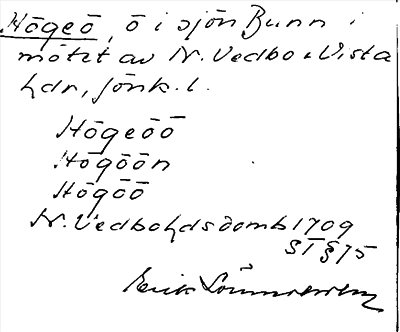 Högeö, ö i sjön Bunn i
mötet av N. Vedbo o. Vista
hdr, Jönk. l.
Högeöö
Högöön
Högöö
N. Vedbo hds domb 1709
ST § 75
Erik